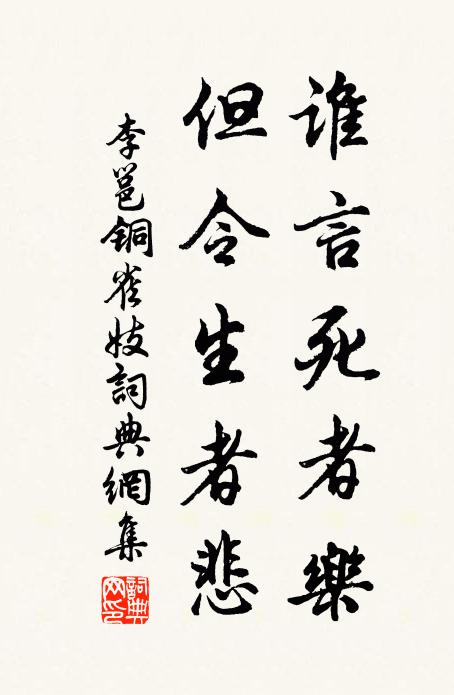 誰言死者樂
但令生者悲
李邕銅雀妓詞典網集
詞典网印